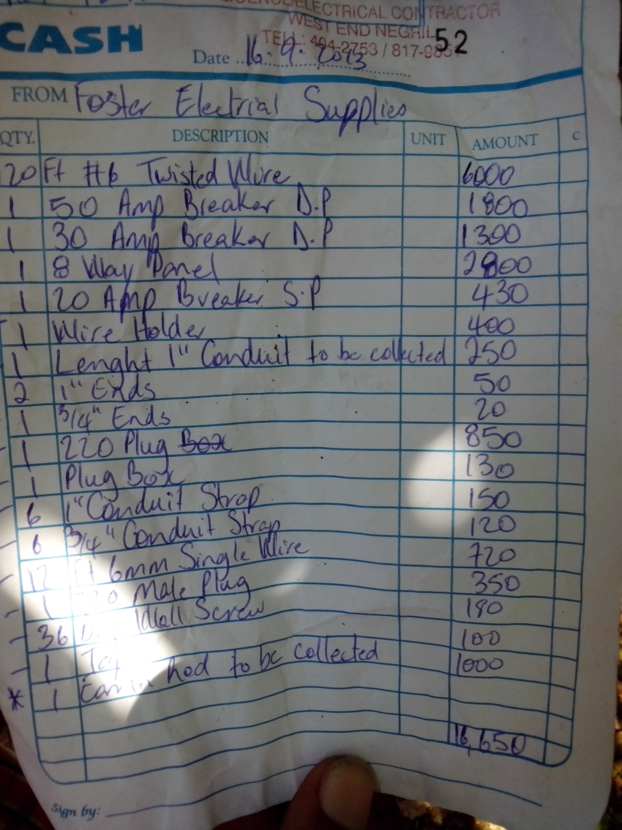 ELECTRICAL CONTRACTOR
WEST END NEGRIL
CASH
52
Date 16.9.2023
FROM Foster Electrial Supplies
QTY. DESCRIPTION UNIT AMOUNT C
20 Ft #6 Twisted Wire 6000
1 50 Amp Breaker D.P 1800
1 30 Amp Breaker D.P 1300
1 8 Way Panel 2800
1 20 Amp Breaker S.P 430
1 Wire Holder 400
1 Lenght 1" Conduit to be collected 250
2 1" Ends 50
1 3/4" Ends 20
1 220 Plug Box 850
1 Plug Box 130
6 1" Conduit Strap 150
6 3/4" Conduit Strap 120
12 Ft 6mm Single Wire 720
1 Male Plug 350
36 Wall Screw 180
1 100
* 1 hod to be collected 1000
16,650
Sign by: